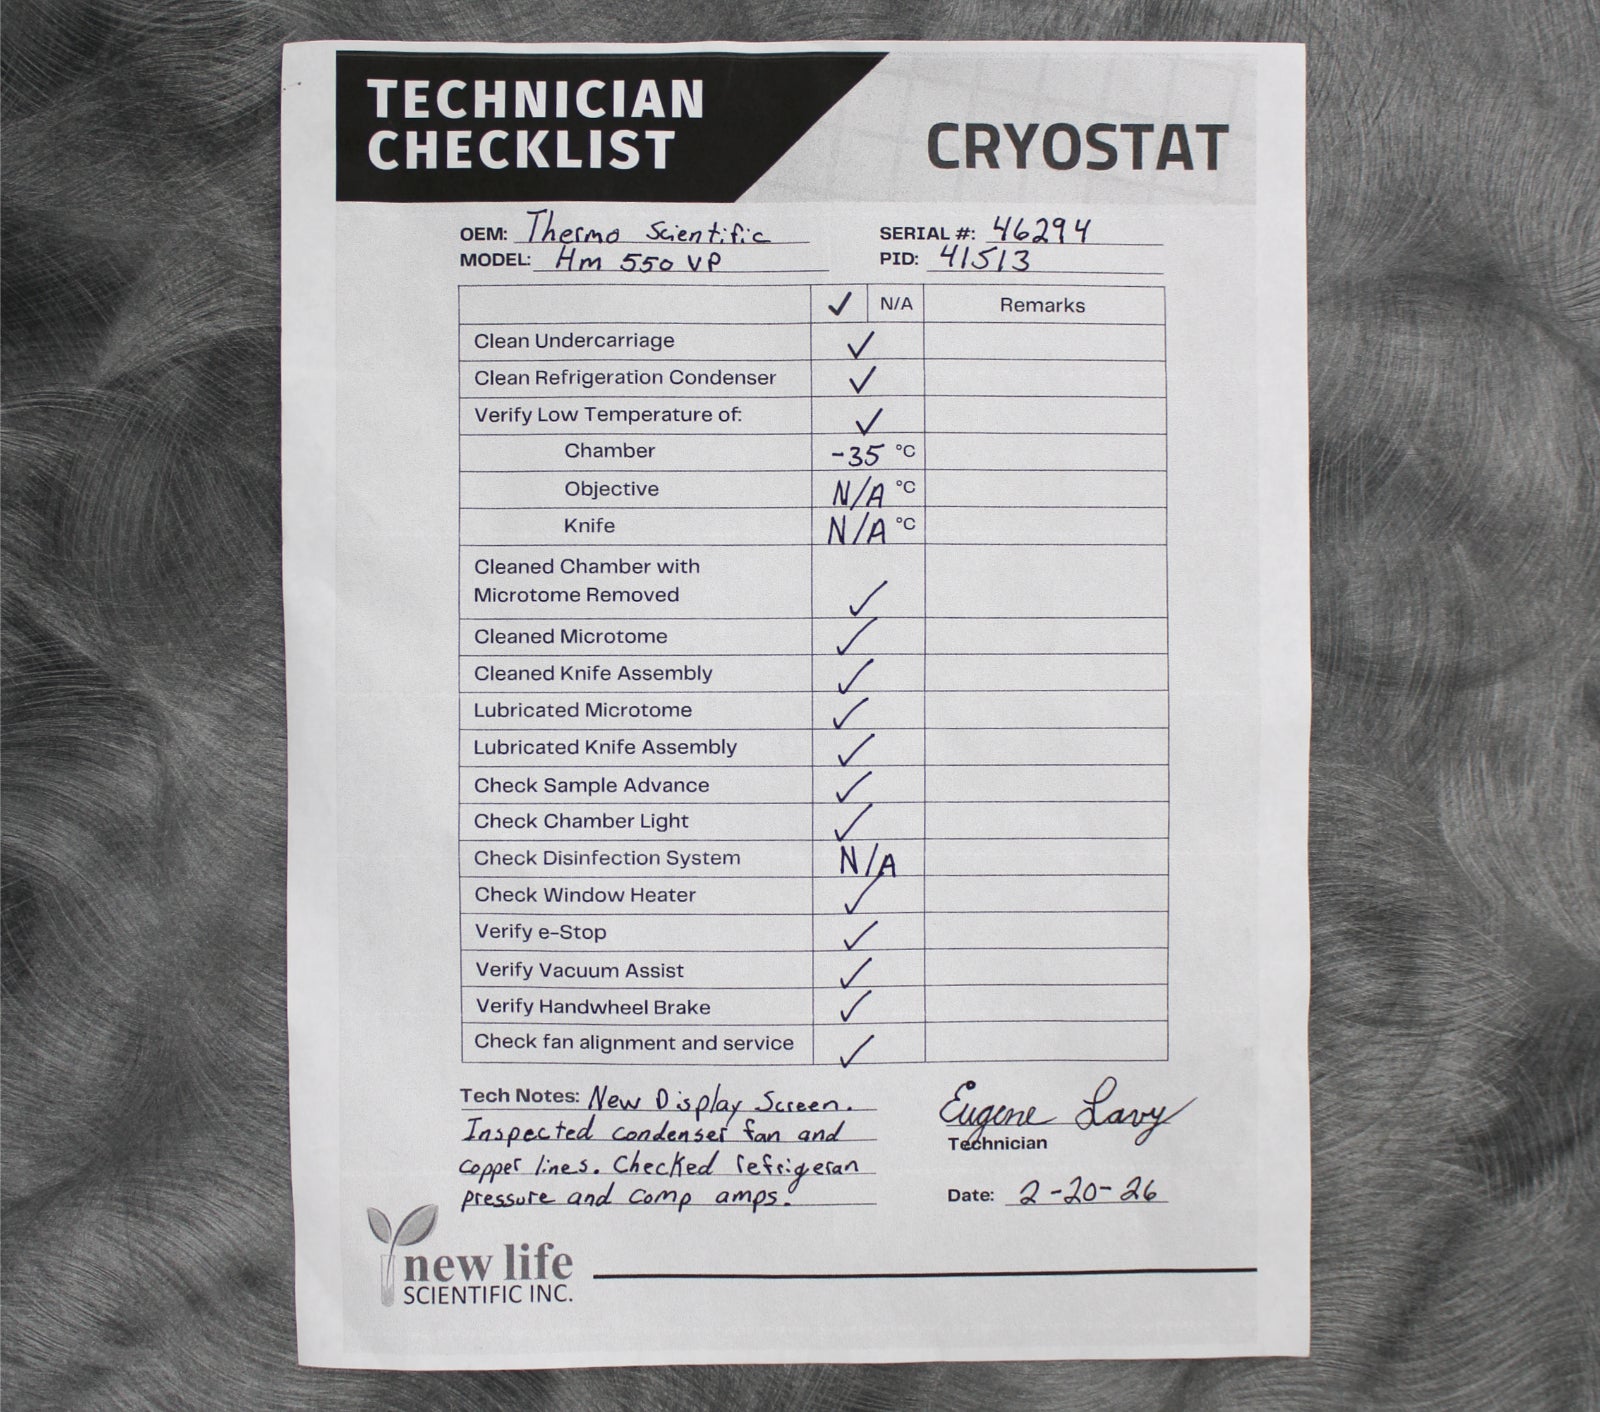 TECHNICIAN
CHECKLIST
CRYOSTAT
OEM: Thermo Scientific
SERIAL #: 46294
MODEL: Hm 550 VP
PID: 41513
✓ N/A Remarks
Clean Undercarriage ✓
Clean Refrigeration Condenser ✓
Verify Low Temperature of: ✓
Chamber -35 °C
Objective N/A °C
Knife N/A °C
Cleaned Chamber with
Microtome Removed ✓
Cleaned Microtome ✓
Cleaned Knife Assembly ✓
Lubricated Microtome ✓
Lubricated Knife Assembly ✓
Check Sample Advance ✓
Check Chamber Light ✓
Check Disinfection System N/A
Check Window Heater ✓
Verify e-Stop ✓
Verify Vacuum Assist ✓
Verify Handwheel Brake ✓
Check fan alignment and service ✓
Tech Notes: New Display Screen.
Inspected condenser fan and
copper lines. Checked refrigeran
pressure and comp amps.
Eugene Lavy
Technician
Date: 2-20-26
new life
SCIENTIFIC INC.